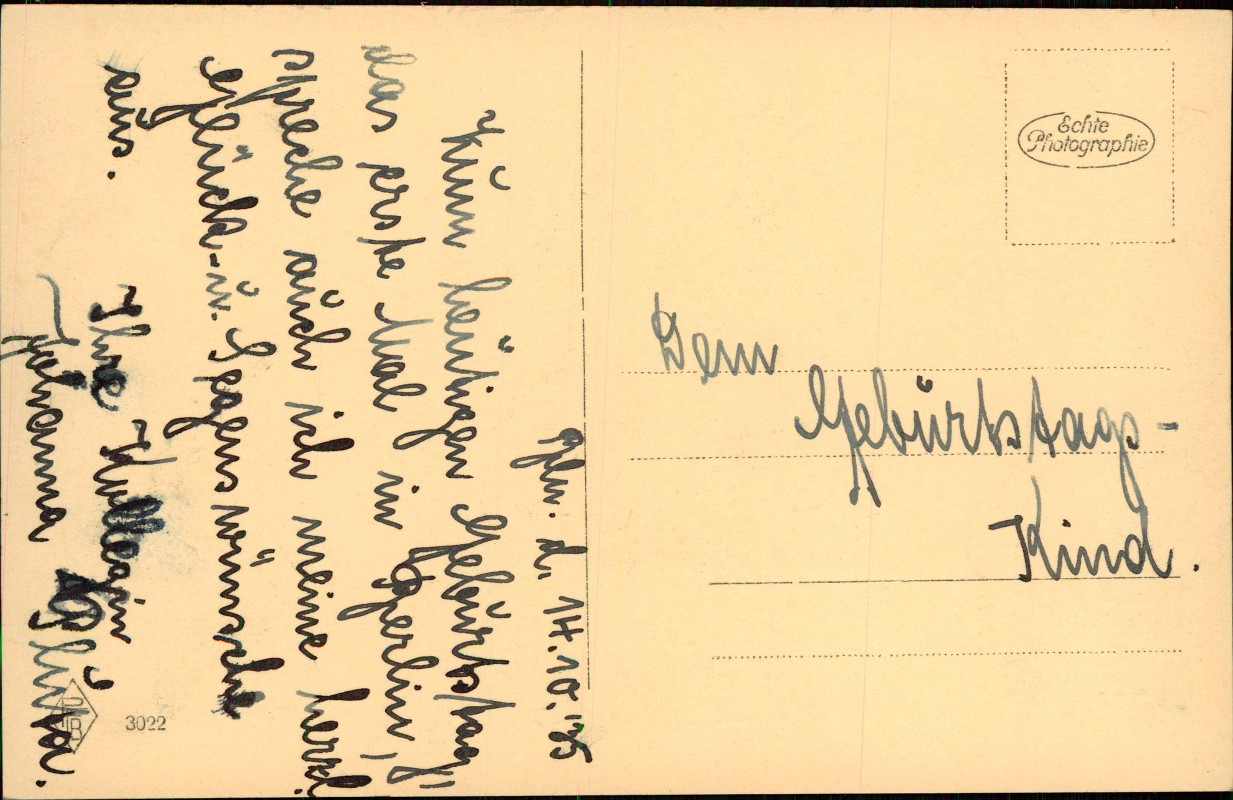 Bln. d. 14.10.'35
Zum heutigen Geburtstag,
das erste Mal in Berlin,
spreche auch ich meine herzl.
Glück- u. Segenswünsche
aus.
Ihre Kollegin
Johanna
Echte
Photographie
Dem
Geburtstags-
Kind.
3022